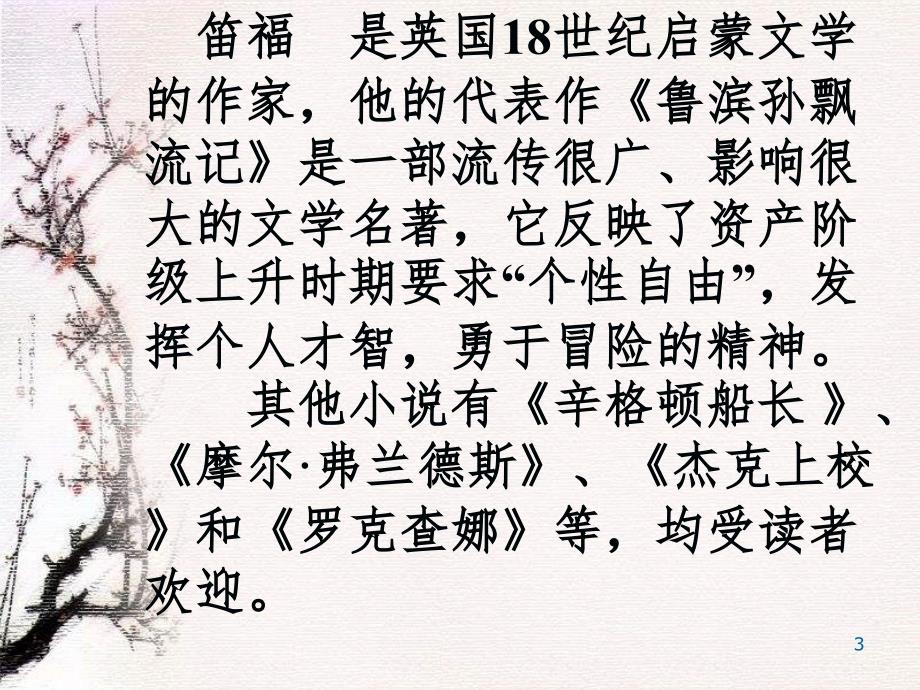 笛福 是英国18世纪启蒙文学
的作家，他的代表作《鲁滨孙飘
流记》是一部流传很广、影响很
大的文学名著，它反映了资产阶
级上升时期要求“个性自由”，发
挥个人才智，勇于冒险的精神。
其他小说有《辛格顿船长 》、
《摩尔·弗兰德斯》、《杰克上校
》和《罗克查娜》等，均受读者
欢迎。
3